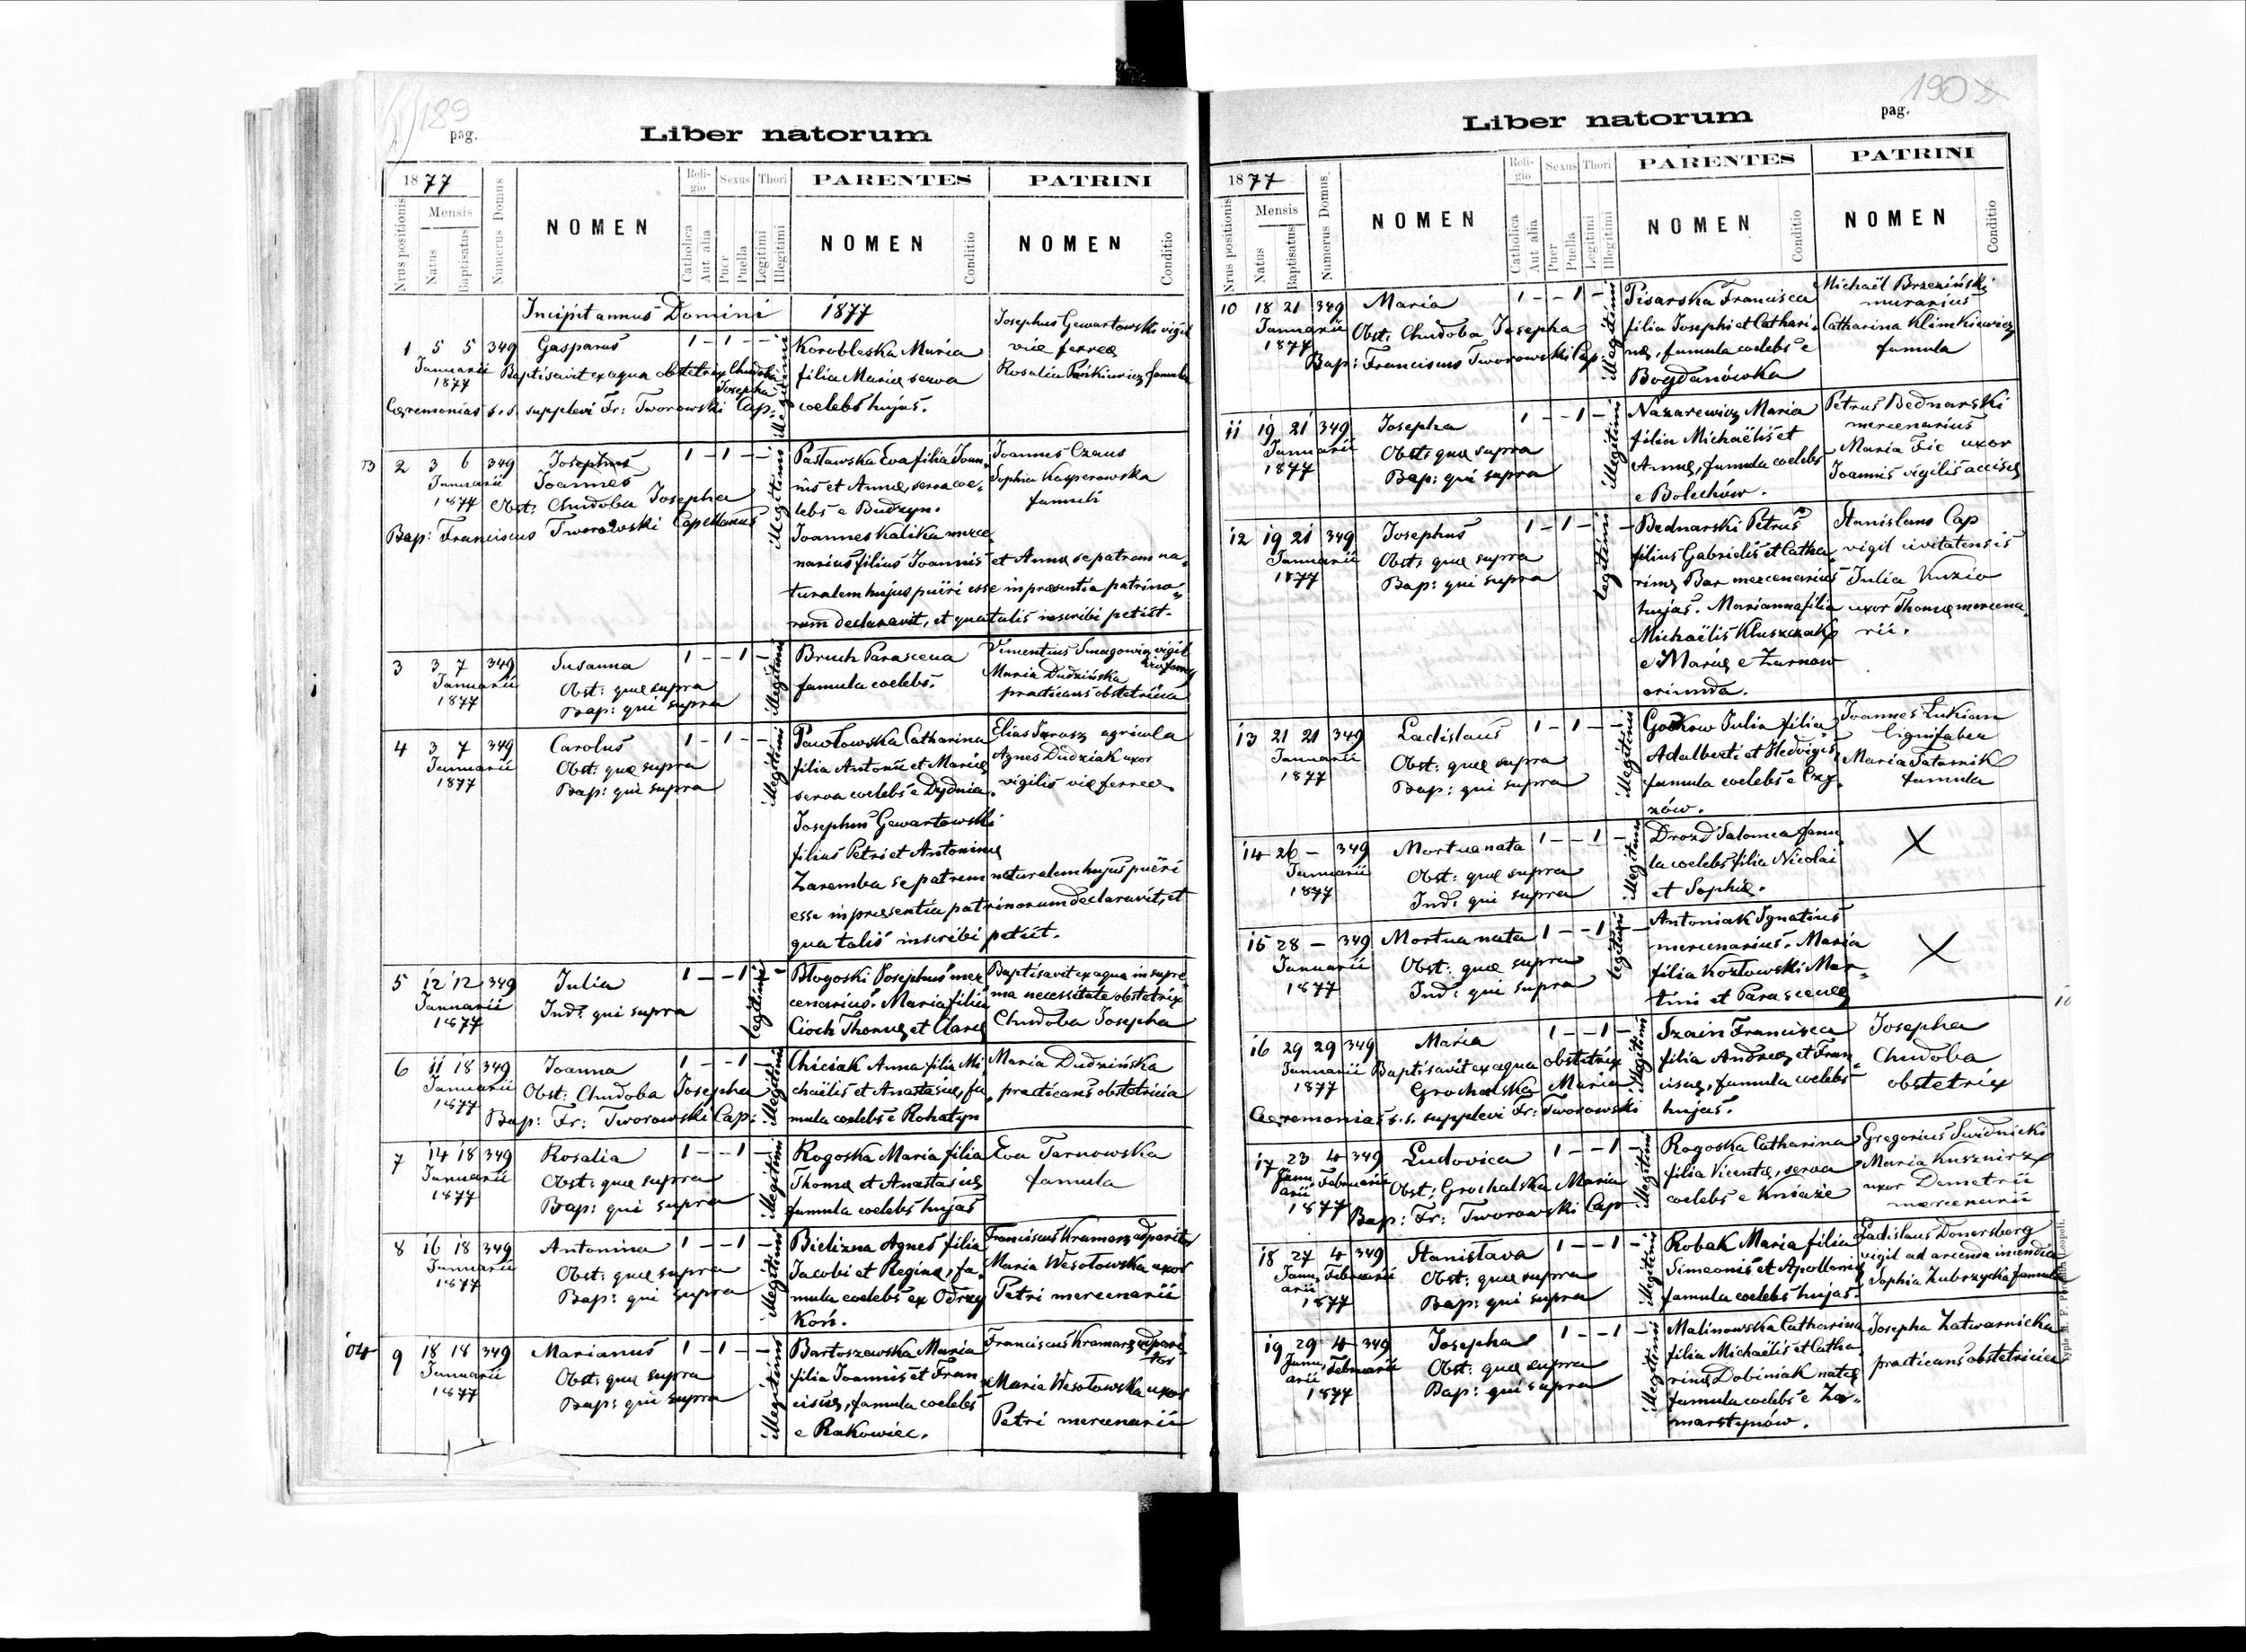 189
pag.
Liber natorum
1877
Nrus positionis
Mensis
Natus
Baptisatus
Numerus Domus
NOMEN
Religio
Catholica
Aut alia
Sexus
Puer
Puella
Thori
Legitimi
Illegitimi
PARENTES
NOMEN
Conditio
PATRINI
NOMEN
Conditio
Incipit annus Domini 1877
1 5 5 349 Gasparus 1 - 1 - -
Januarii
1877
Baptisavit ex aqua obstetrix Chudoba
Josepha
Cæremonias s. s. supplevi Fr: Tworowski Cap:
illegitimi
Korobleska Maria
filia Mariæ serva
coelebs hujas.
Josephus Gewartowski vigil
viæ ferreæ
Rosalia famula
2 3 6 349 Josephus 1 - 1 - -
Januarii Joannes
1877 Obst: Chudoba Josepha
Bap: Franciscus Tworowski Capellanus
illegitimi
Pasławska Eva filia Joan-
nis et Annæ, serva coe-
lebs e Budzyn.
Joannes Kalika merce-
narius filius Joannis et Annæ se patrem na-
turalem hujus pueri esse in præsentia patrino-
rum declaravit, et qua talis inscribi petiit.
Joannes Czaus
Sophia Kasperowska
famuli
3 3 7 349 Susanna 1 - - 1 -
Januarii Obst: quæ supra
1877 Bap: qui supra
illegitimi
Bruch Parascena
famula coelebs.
Vincentius vigil
Maria Dudzińska
practicans obstetricia
4 3 7 349 Carolus 1 - 1 - -
Januarii Obst: quæ supra
1877 Bap: qui supra
illegitimi
Pawłowska Catharina
filia Antonii et Mariæ
serva coelebs e Dydnia.
Josephus Gewartowski
filius Petri et Antoninæ
Zaremba se patrem naturalem hujus pueri
esse in præsentia patrinorum declaravit, et
qua talis inscribi petiit.
Elias Jarosz agricola
Agnes Dudziak uxor
vigilis viæ ferreæ
5 12 12 349 Julia 1 - - 1 -
Januarii Ind: qui supra
1877
legitimi
Błogoski Josephus mer-
cenarius. Maria filia
Cioch Thomæ et Claræ
Baptisavit ex aqua in supre-
ma necessitate obstetrix
Chudoba Josepha
6 11 18 349 Joanna 1 - - 1 -
Januarii Obst: Chudoba Josepha
1877 Bap: Fr: Tworowski Cap:
illegitimi
Chiciak Anna filia Mi-
chaëlis et Anastasiæ, fa-
mula coelebs e Rohatyn
Maria Dudzińska
practicans obstetricia
7 14 18 349 Rosalia 1 - - 1 -
Januarii Obst: quæ supra
1877 Bap: qui supra
illegitimi
Rogoska Maria filia
Thomæ et Anastasiæ
famula coelebs hujas
Eva Tarnowska
famula
8 16 18 349 Antonina 1 - - 1 -
Januarii Obst: quæ supra
1877 Bap: qui supra
illegitimi
Bielizna Agnes filia
Jacobi et Reginæ, fa-
mula coelebs ex Odrzy-
koń.
Franciscus Kramarz adparitor
Maria Wesołowska uxor
Petri mercenarii
9 18 18 349 Marianus 1 - 1 - -
Januarii Obst: quæ supra
1877 Bap: qui supra
illegitimi
Bartoszewska Maria
filia Joannis et Fran-
ciscæ, famula coelebs
e Rakowiec.
Franciscus Kramarz adpari-
tor
Maria Wesołowska uxor
Petri mercenarii
190
pag.
Liber natorum
1877
Nrus positionis
Mensis
Natus
Baptisatus
Numerus Domus
NOMEN
Religio
Catholica
Aut alia
Sexus
Puer
Puella
Thori
Legitimi
Illegitimi
PARENTES
NOMEN
Conditio
PATRINI
NOMEN
Conditio
10 18 21 349 Maria 1 - - 1 -
Januarii Obst: Chudoba Josepha
1877 Bap: Franciscus Tworowski Cap:
illegitimi
Pisarska Francisca
filia Josephi et Cathari-
næ, famula coelebs e
Bogdanówka
Michaël Brzeziński
murarius
Catharina Klimkiewicz
famula
11 19 21 349 Josepha 1 - - 1 -
Januarii Obst: quæ supra
1877 Bap: qui supra
illegitimi
Nazarewicz Maria
filia Michaëlis et
Annæ, famula coelebs
e Bolechów.
Petrus Bednarski
mercenarius
Maria Fic uxor
Joannis vigilis accisæ
12 19 21 349 Josephus 1 - 1 - -
Januarii Obst: quæ supra
1877 Bap: qui supra
legitimi
Bednarski Petrus
filius Gabrielis et Catha-
rinæ Bar mercenarius
hujas. Marianna filia
Michaëlis Kluszczak
e Mariæ e Zarnow
oriunda.
Stanislaus Cap
vigil civitatensis
Julia Kuzio
uxor Thomæ mercena-
rii.
13 21 21 349 Ladislaus 1 - 1 - -
Januarii Obst: quæ supra
1877 Bap: qui supra
illegitimi
Julia filia
Adalberti et Hedvigis,
famula coelebs e Czy-
zów.
Joannes Lukian
lignifaber
Maria Tatarnik
famula
14 26 - 349 Mortua nata 1 - - 1 -
Januarii Obst: quæ supra
1877 Ind: qui supra
illegitimi
Drozd Salomea famu-
la coelebs filia Nicolai
et Sophiæ.
X
15 28 - 349 Mortua nata 1 - - 1 -
Januarii Obst: quæ supra
1877 Ind: qui supra
legitimi
Antoniak Ignatius
mercenarius. Maria
filia Kozłowski Mar-
tini et Parascenæ
X
16 29 29 349 Maria 1 - - 1 -
Januarii Baptisavit ex aqua obstetrix
1877 Grochalska Maria
Cæremonias s. s. supplevi Fr: Tworowski
illegitimi
Szain Francisca
filia Andreæ et Fran-
ciscæ, famula coelebs
hujas.
Josepha
Chudoba
obstetrix
17 23 4 349 Ludovica 1 - - 1 -
Januarii Februarii Obst: Grochalska Maria
1877 Bap: Fr: Tworowski Cap
illegitimi
Rogoska Catharina
filia Vicentæ, serva
coelebs e Kniaże
Gregorius Swidnicki
Maria Kusznirz
uxor Demetrii
mercenarii
18 27 4 349 Stanisłava 1 - - 1 -
Januarii Februarii Obst: quæ supra
1877 Bap: qui supra
illegitimi
Robak Maria filia
Simeonis et Apolloniæ
famula coelebs hujas.
Ladislaus Donersberg
vigil ad arcenda incendia
Sophia Zubrzycka famula
19 29 4 349 Josepha 1 - - 1 -
Januarii Februarii Obst: quæ supra
1877 Bap: qui supra
illegitimi
Malinowska Catharina
filia Michaëlis et Catha-
rinæ Dobiniak natæ
famula coelebs e Za-
marstynów.
Josepha Zatwarnicka
practicans obstetricia